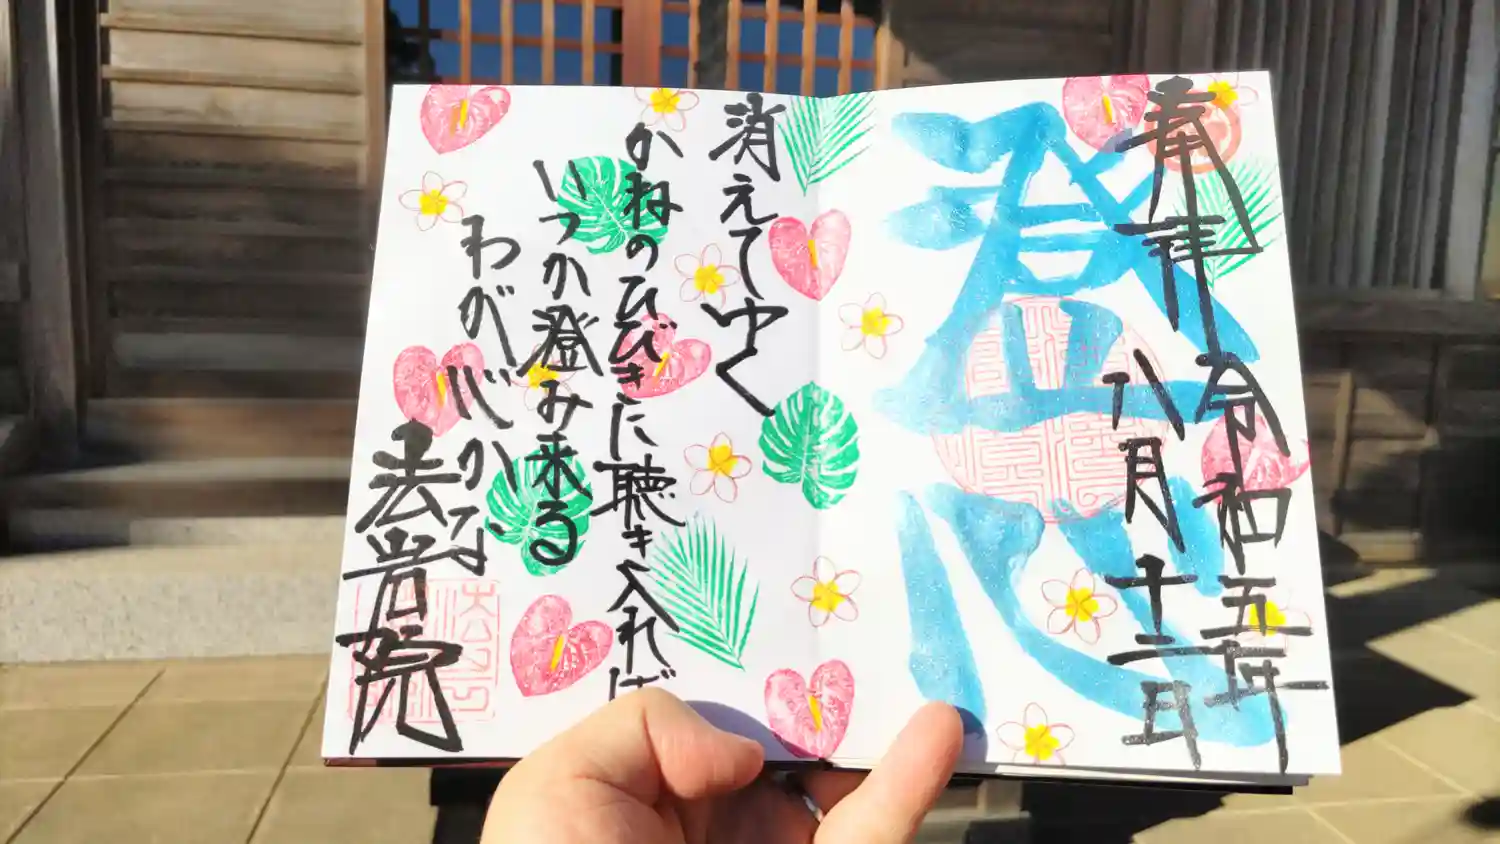 奉拝
令和五年
八月十二日
澄心
消えてゆく
かねのひびきに聴き入れば
いつか澄み来る
わが心かな
法音院